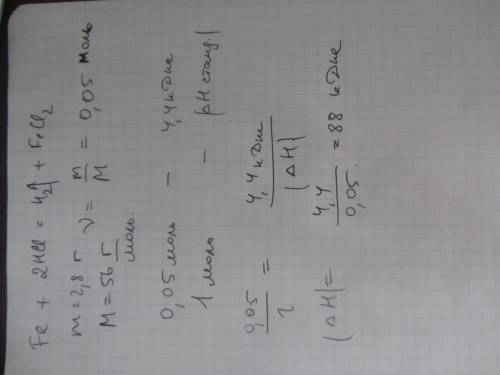 Fe + 2HCl = H2↑ + FeCl2
m = 2,8 г ν = m/M = 0,05 моль
M = 56 г/моль.
0,05 моль – 4,4 кДж
1 моль – |ΔH станд.|
0,05/1 = 4,4 кДж/|ΔH|
|ΔH| = 4,4/0,05. = 88 кДж